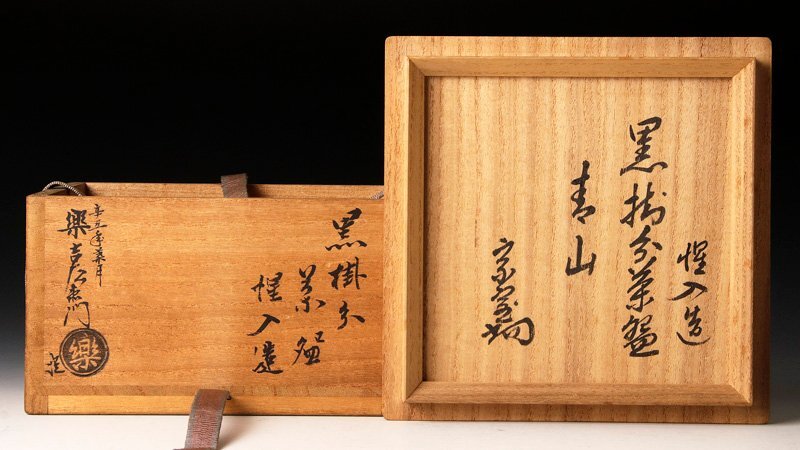 黒掛分
茶碗
惺入造
辛五年葉月
樂吉左衛門
樂
惺入造
黒掛分茶盌
青山